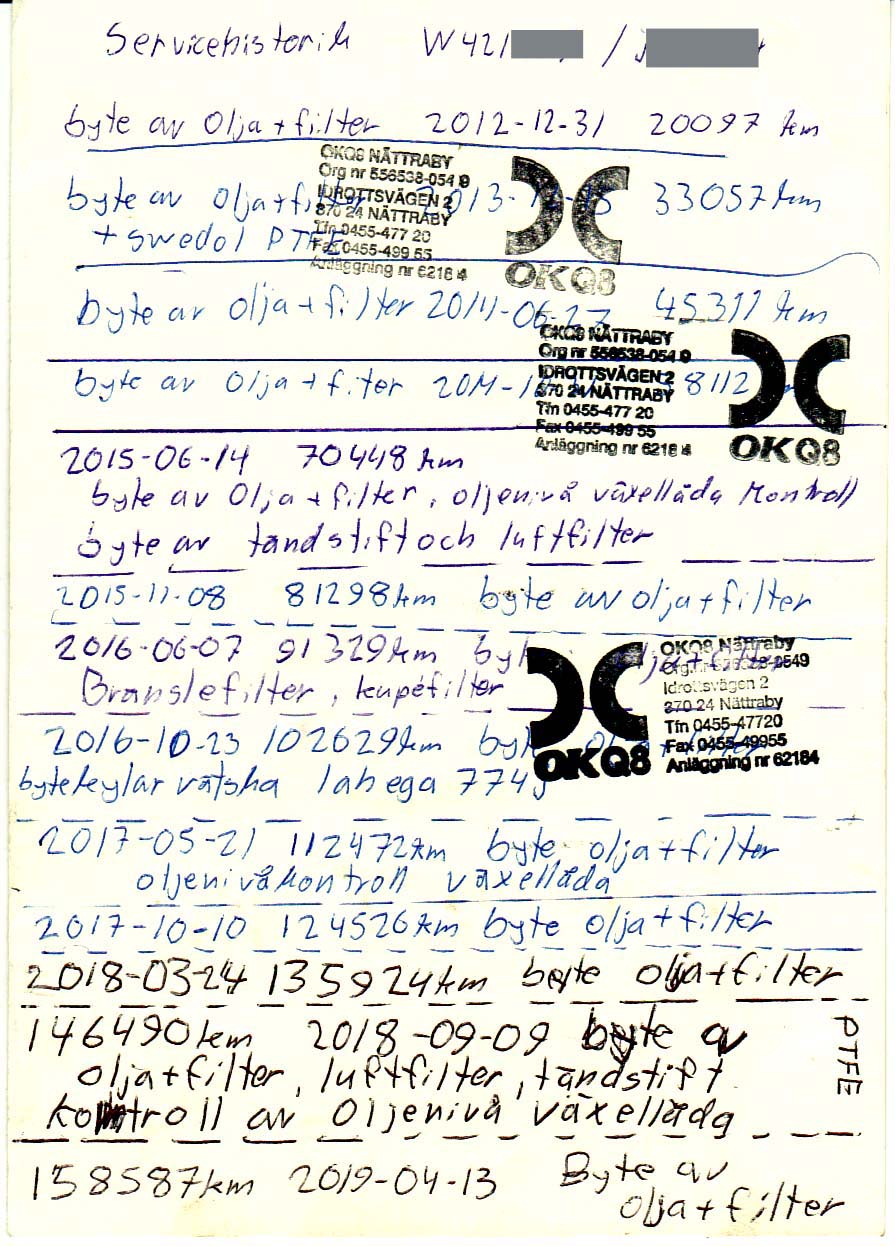 Servicehistorik W421 /
byte av olja + filter 2012-12-31 20097 km
OKQ8 NÄTTRABY
Org nr 556538-054 9
IDROTTSVÄGEN 2
370 24 NÄTTRABY
Tfn 0455-477 20
Fax 0455-499 55
Anläggning nr 6218 4
OKQ8
byte av olja + filter 2013-12-15 33057 km
+ swedol PTFE
byte av olja + filter 2014-06-27 45311 km
OKQ8 NÄTTRABY
Org nr 556538-054 9
IDROTTSVÄGEN 2
370 24 NÄTTRABY
Tfn 0455-477 20
Fax 0455-499 55
Anläggning nr 6218 4
OKQ8
byte av olja + filter 8112
2015-06-14 70448 km
byte av olja + filter, oljenivå växellåda kontroll
byte av tändstift och luftfilter
2015-11-08 81298 km byte av olja + filter
2016-06-07 91329 km byte olja + filter
Bränslefilter, kupéfilter
OKQ8
OKQ8 Nättraby
Idrottsvägen 2
370 24 Nättraby
Tfn 0455-47720
Fax 0455-49955
Anläggning nr 62184
2016-10-23 102629 km byte olja + filter
byte kylar vätska lahega 774
2017-05-21 112472 km byte olja + filter
oljenivåkontroll växellåda
2017-10-10 124526 km byte olja + filter
2018-03-24 135924 km byte olja + filter
146490 km 2018-09-09 byte av
olja + filter, luftfilter, tändstift
kontroll av oljenivå växellåda
PTFE
158587 km 2019-04-13 Byte av
olja + filter